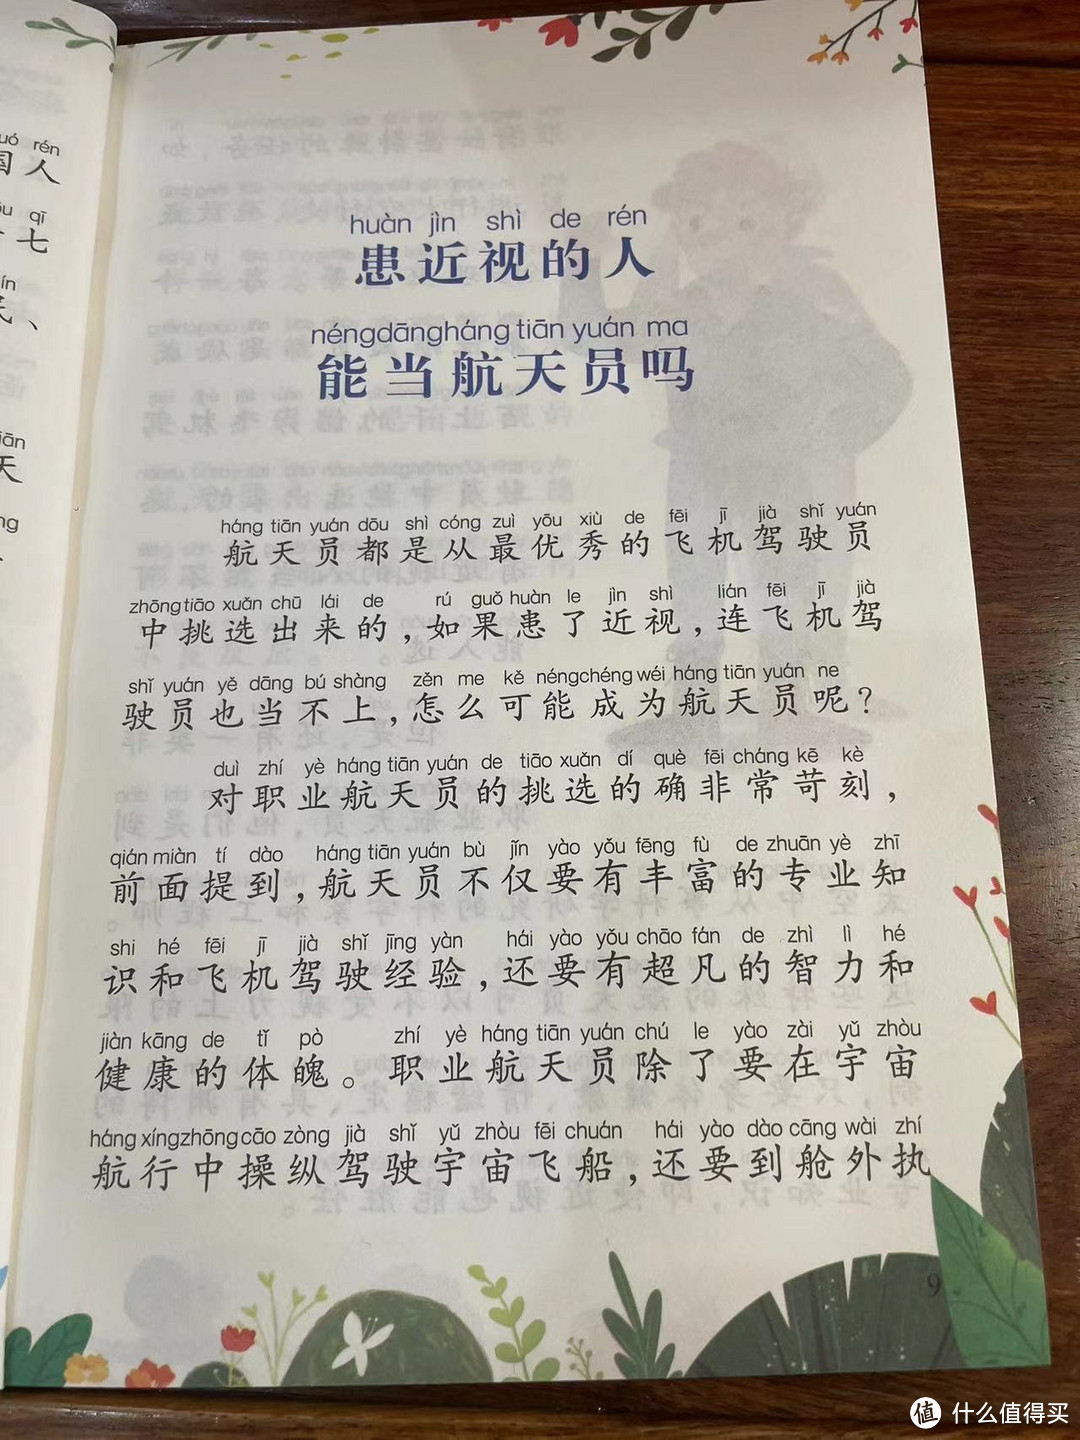 uó rén
国人
qī
七
ín
民、
iān
天
ng
huàn jìn shì de rén
患近视的人
néngdāngháng tiān yuán ma
能当航天员吗
háng tiān yuán dōu shì cóng zuì yōu xiù de fēi jī jià shǐ yuán
航天员都是从最优秀的飞机驾驶员
zhōng tiāo xuǎn chū lái de rú guǒ huàn le jìn shì lián fēi jī jià
中挑选出来的，如果患了近视，连飞机驾
shǐ yuán yě dāng bú shàng zěn me kě néngchéng wéi háng tiān yuán ne
驶员也当不上，怎么可能成为航天员呢？
duì zhí yè háng tiān yuán de tiāo xuǎn dí què fēi cháng kē kè
对职业航天员的挑选的确非常苛刻，
qián miàn tí dào háng tiān yuán bù jǐn yào yǒu fēng fù de zhuān yè zhī
前面提到，航天员不仅要有丰富的专业知
shi hé fēi jī jià shǐ jīng yàn hái yào yǒu chāo fán de zhì lì hé
识和飞机驾驶经验，还要有超凡的智力和
jiàn kāng de tǐ pò zhí yè háng tiān yuán chú le yào zài yǔ zhòu
健康的体魄。职业航天员除了要在宇宙
háng xíngzhōng cāo zòng jià shǐ yǔ zhòu fēi chuán hái yào dào cāng wài zhí
航行中操纵驾驶宇宙飞船，还要到舱外执
9
值 什么值得买